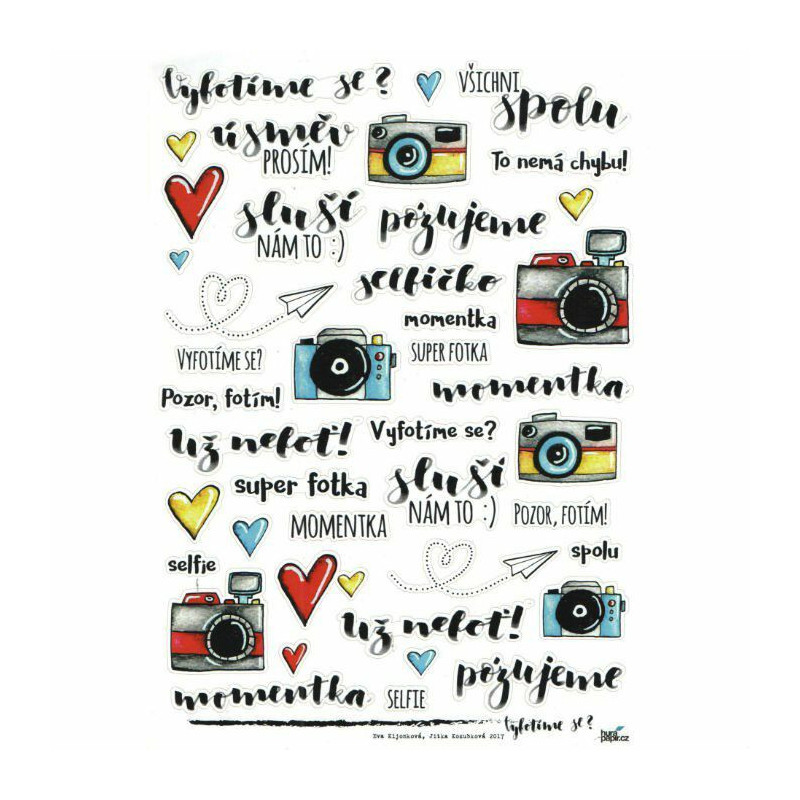 Vyfotíme se?
VŠICHNI
spolu
úsměv
PROSÍM!
To nemá chybu!
sluší
NÁM TO :)
pózujeme
selfíčko
momentka
VYFOTÍME SE?
SUPER FOTKA
Pozor, fotím!
momentka
Už nefoť!
Vyfotíme se?
super fotka
sluší
NÁM TO :)
MOMENTKA
POZOR, FOTÍM!
selfie
spolu
Už nefoť!
pózujeme
momentka
SELFIE
Vyfotíme se?
Eva Kijonková, Jitka Kozubková 2017
hura
papir.cz